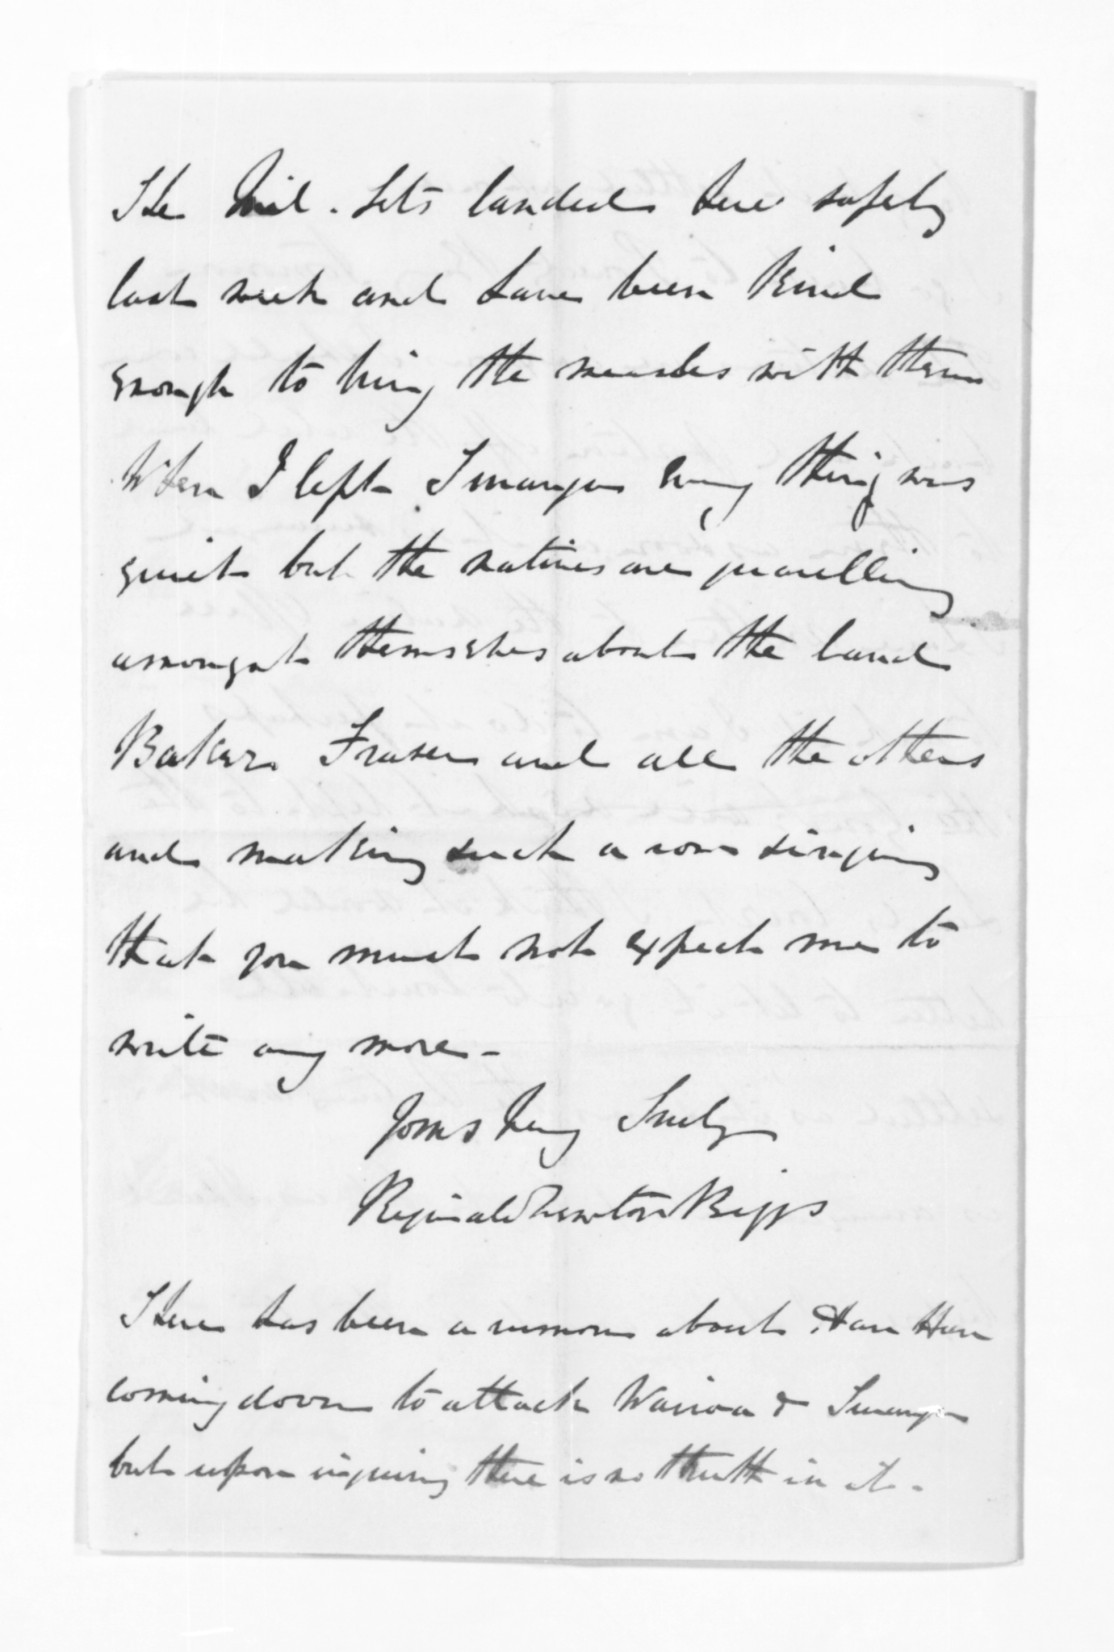 The Mil. Sets landed here safely
last week and have been kind
enough to bring the measles with them
When I left Turanga every thing was
quiet but the natives are quarelling
amongst themselves about the land
Baker Fraser and all the others
and making such a row singing
that you must not expect me to
write any more -
Yours Very Truly
Reginald Newton Biggs
There has been a rumour about Hau Hau
coming down to attack Wairoa & Turanga
but upon inquiring there is no truth in it -